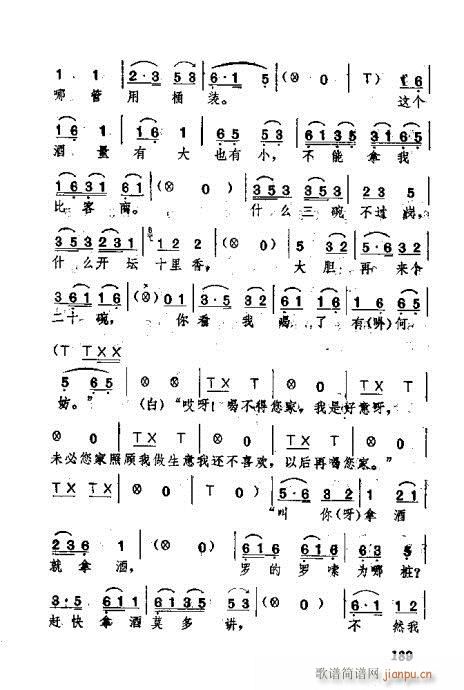 1 1 | 2·3 5 3 | 6·1 5 | (⊗ 0 | T) 6 1 6 |
哪 管 用 桶 装。 这个
1 6 1 6 | 1 1 6 | 6 5 5 3 | 6 1 3 5 3 1 6 1 |
酒 量 有 大 也 有 小， 不 能 拿 我
1 6 3 1 6 1 | (⊗ 0) | 3 5 3 3 5 3 | 2 3 5 |
比 客 商。 什 么 三 碗 不 过 岗，
3 5 3 2 3 1 | 1 2 2 | (⊗ 0) | 5 3 2 | 5·6 3 2 |
什 么 开 坛 十 里 香， 大 胆 再 来 个
3 6 1 1 6 | (⊗) 0 1 | 3·5 3 2 | 1 6 1 1 6 | 1 6 5 |
二 十 碗， 你 看 我 喝 了 有(叫)何
(T T X X
5 6 5) | ⊗ ⊗ | ⊗ 0 | T X T X | T X T |
妨。” (白)“哎呀！喝不得您家，我是好意呀，
⊗ 0 | T X T X | T X T | ⊗ ⊗ | ⊗ 0 |
未必您家照顾我做生意我还不喜欢，以后再喝您家。”
T X T X | ⊗ 0 | T 0) | 5·6 3 2 | 1 2 1 |
“叫 你(呀)拿 酒
2 3 6 1 | (⊗ 0) | 6 1 6 1 | 6 1 6 5 | 6 3 5 |
就 拿 酒， 罗 的 罗 嗦 为 哪 桩？
3·5 6 1 1 | 6 1 3 5 | 2 3 5 5 | (⊗ 0) | 6·1 1 2 |
赶 快 拿 酒 莫 多 讲， 不 然 我
189
歌谱简谱网
jianpu.cn